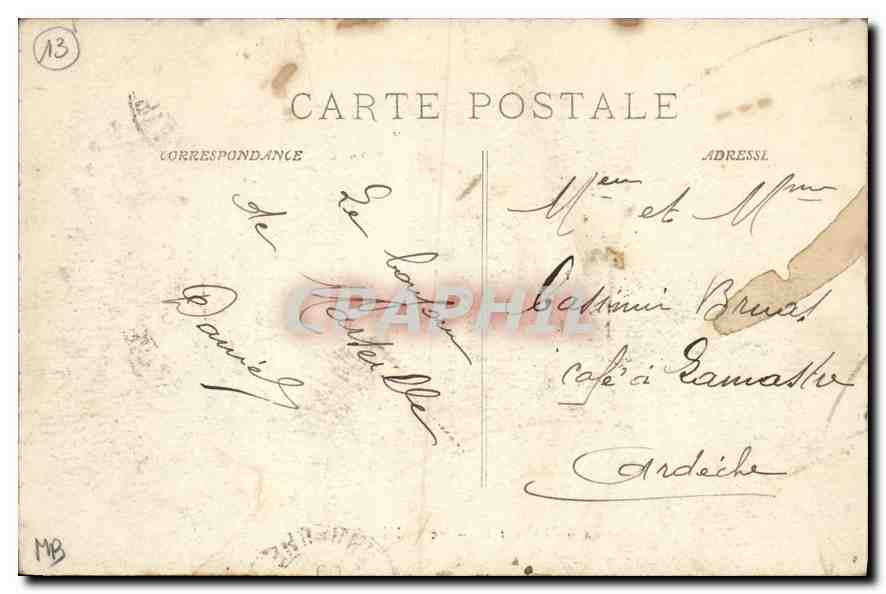 13
CARTE POSTALE
CORRESPONDANCE
ADRESSE
Le bonjour
de Marseille
Daniel
Meur et Mme
Cassimir Bruas
café à Lamastre
Ardèche
CPAPHIL
MB